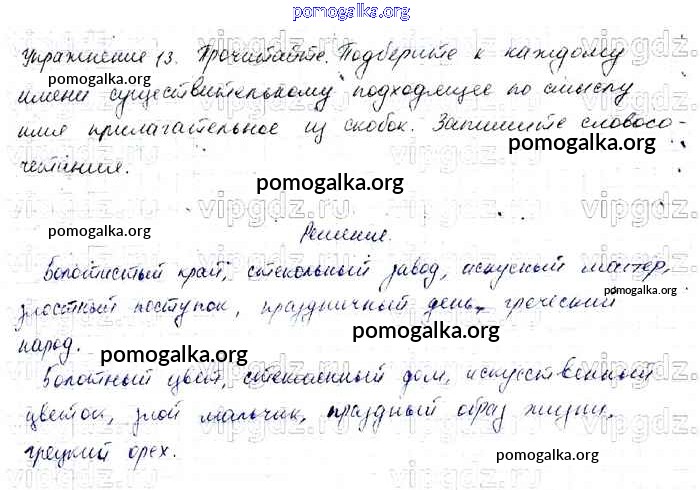 pomogalka.org
Упражнение 13. Прочитайте. Подберите к каждому
pomogalka.org pomogalka.org
имени существительному подходящее по смыслу
имя прилагательное из скобок. Запишите словосо-
pomogalka.org
четания.
pomogalka.org
vipgdz.ru vipgdz.ru vipgdz.ru
pomogalka.org
Решение.
Болотистый край, стекольный завод, искусный мастер,
pomogalka.org
злостный поступок, праздничный день, греческий
pomogalka.org
народ.
pomogalka.org
Болотный цвет, стеклянный дом, искусственный
цветок, злой мальчик, праздный образ жизни,
pomogalka.org
грецкий орех.
pomogalka.org